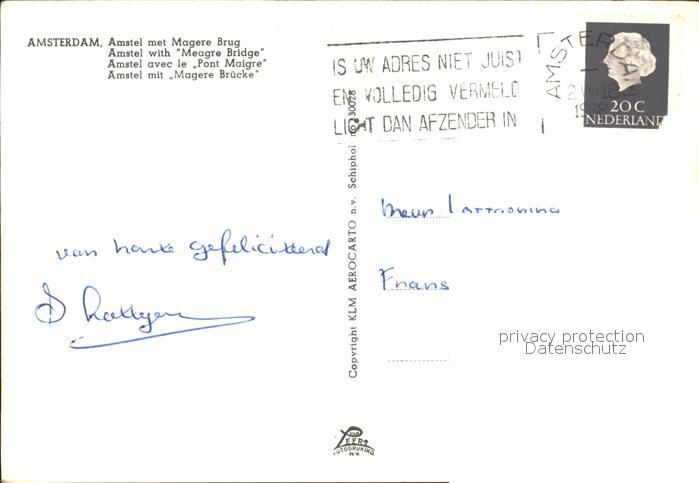 AMSTERDAM, Amstel met Magere Brug
Amstel with "Meagre Bridge"
Amstel avec le „Pont Maigre"
Amstel mit „Magere Brücke"
IS UW ADRES NIET JUIST
EN VOLLEDIG VERMELD
LICHT DAN AFZENDER IN
AMSTERDAM
1968
20 C
NEDERLAND
van harte gefeliciteerd
Copyright KLM AEROCARTO n.v. Schiphol no. 30028
Frans
privacy protection
Datenschutz
VAN
PEERS
AUTODRUKING
N.V.